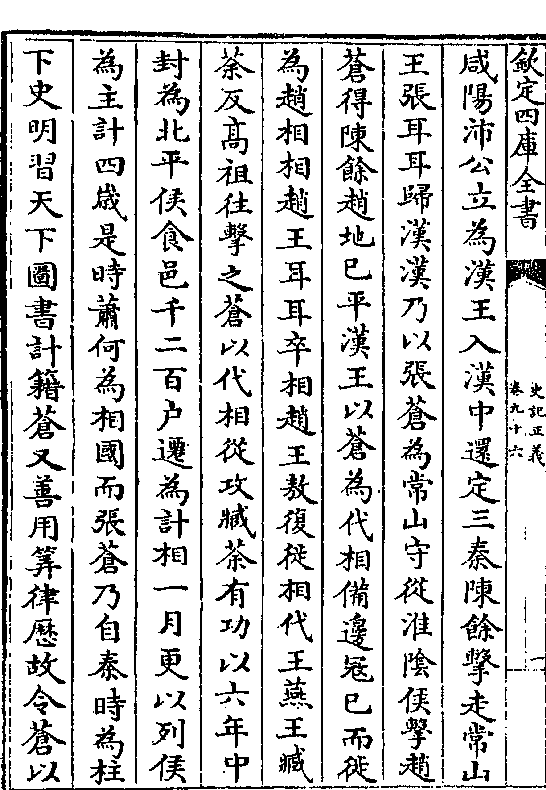 欽定四庫全書
史記正義
卷九十六
一
咸陽沛公立為漢王入漢中還定三秦陳餘擊走常山
王張耳耳歸漢漢乃以張蒼為常山守從淮陰侯擊趙
蒼得陳餘趙地已平漢王以蒼為代相備邊冦已而徙
為趙相相趙王耳耳卒相趙王敖復徙相代王燕王臧
荼反髙祖往擊之蒼以代相從攻臧荼有功以六年中
封為北平侯食邑千二百户遷為計相一月更以列侯
為主計四嵗是時蕭何為相國而張蒼乃自秦時為柱
下史明習天下圖書計籍蒼又善用筭律厯故令蒼以